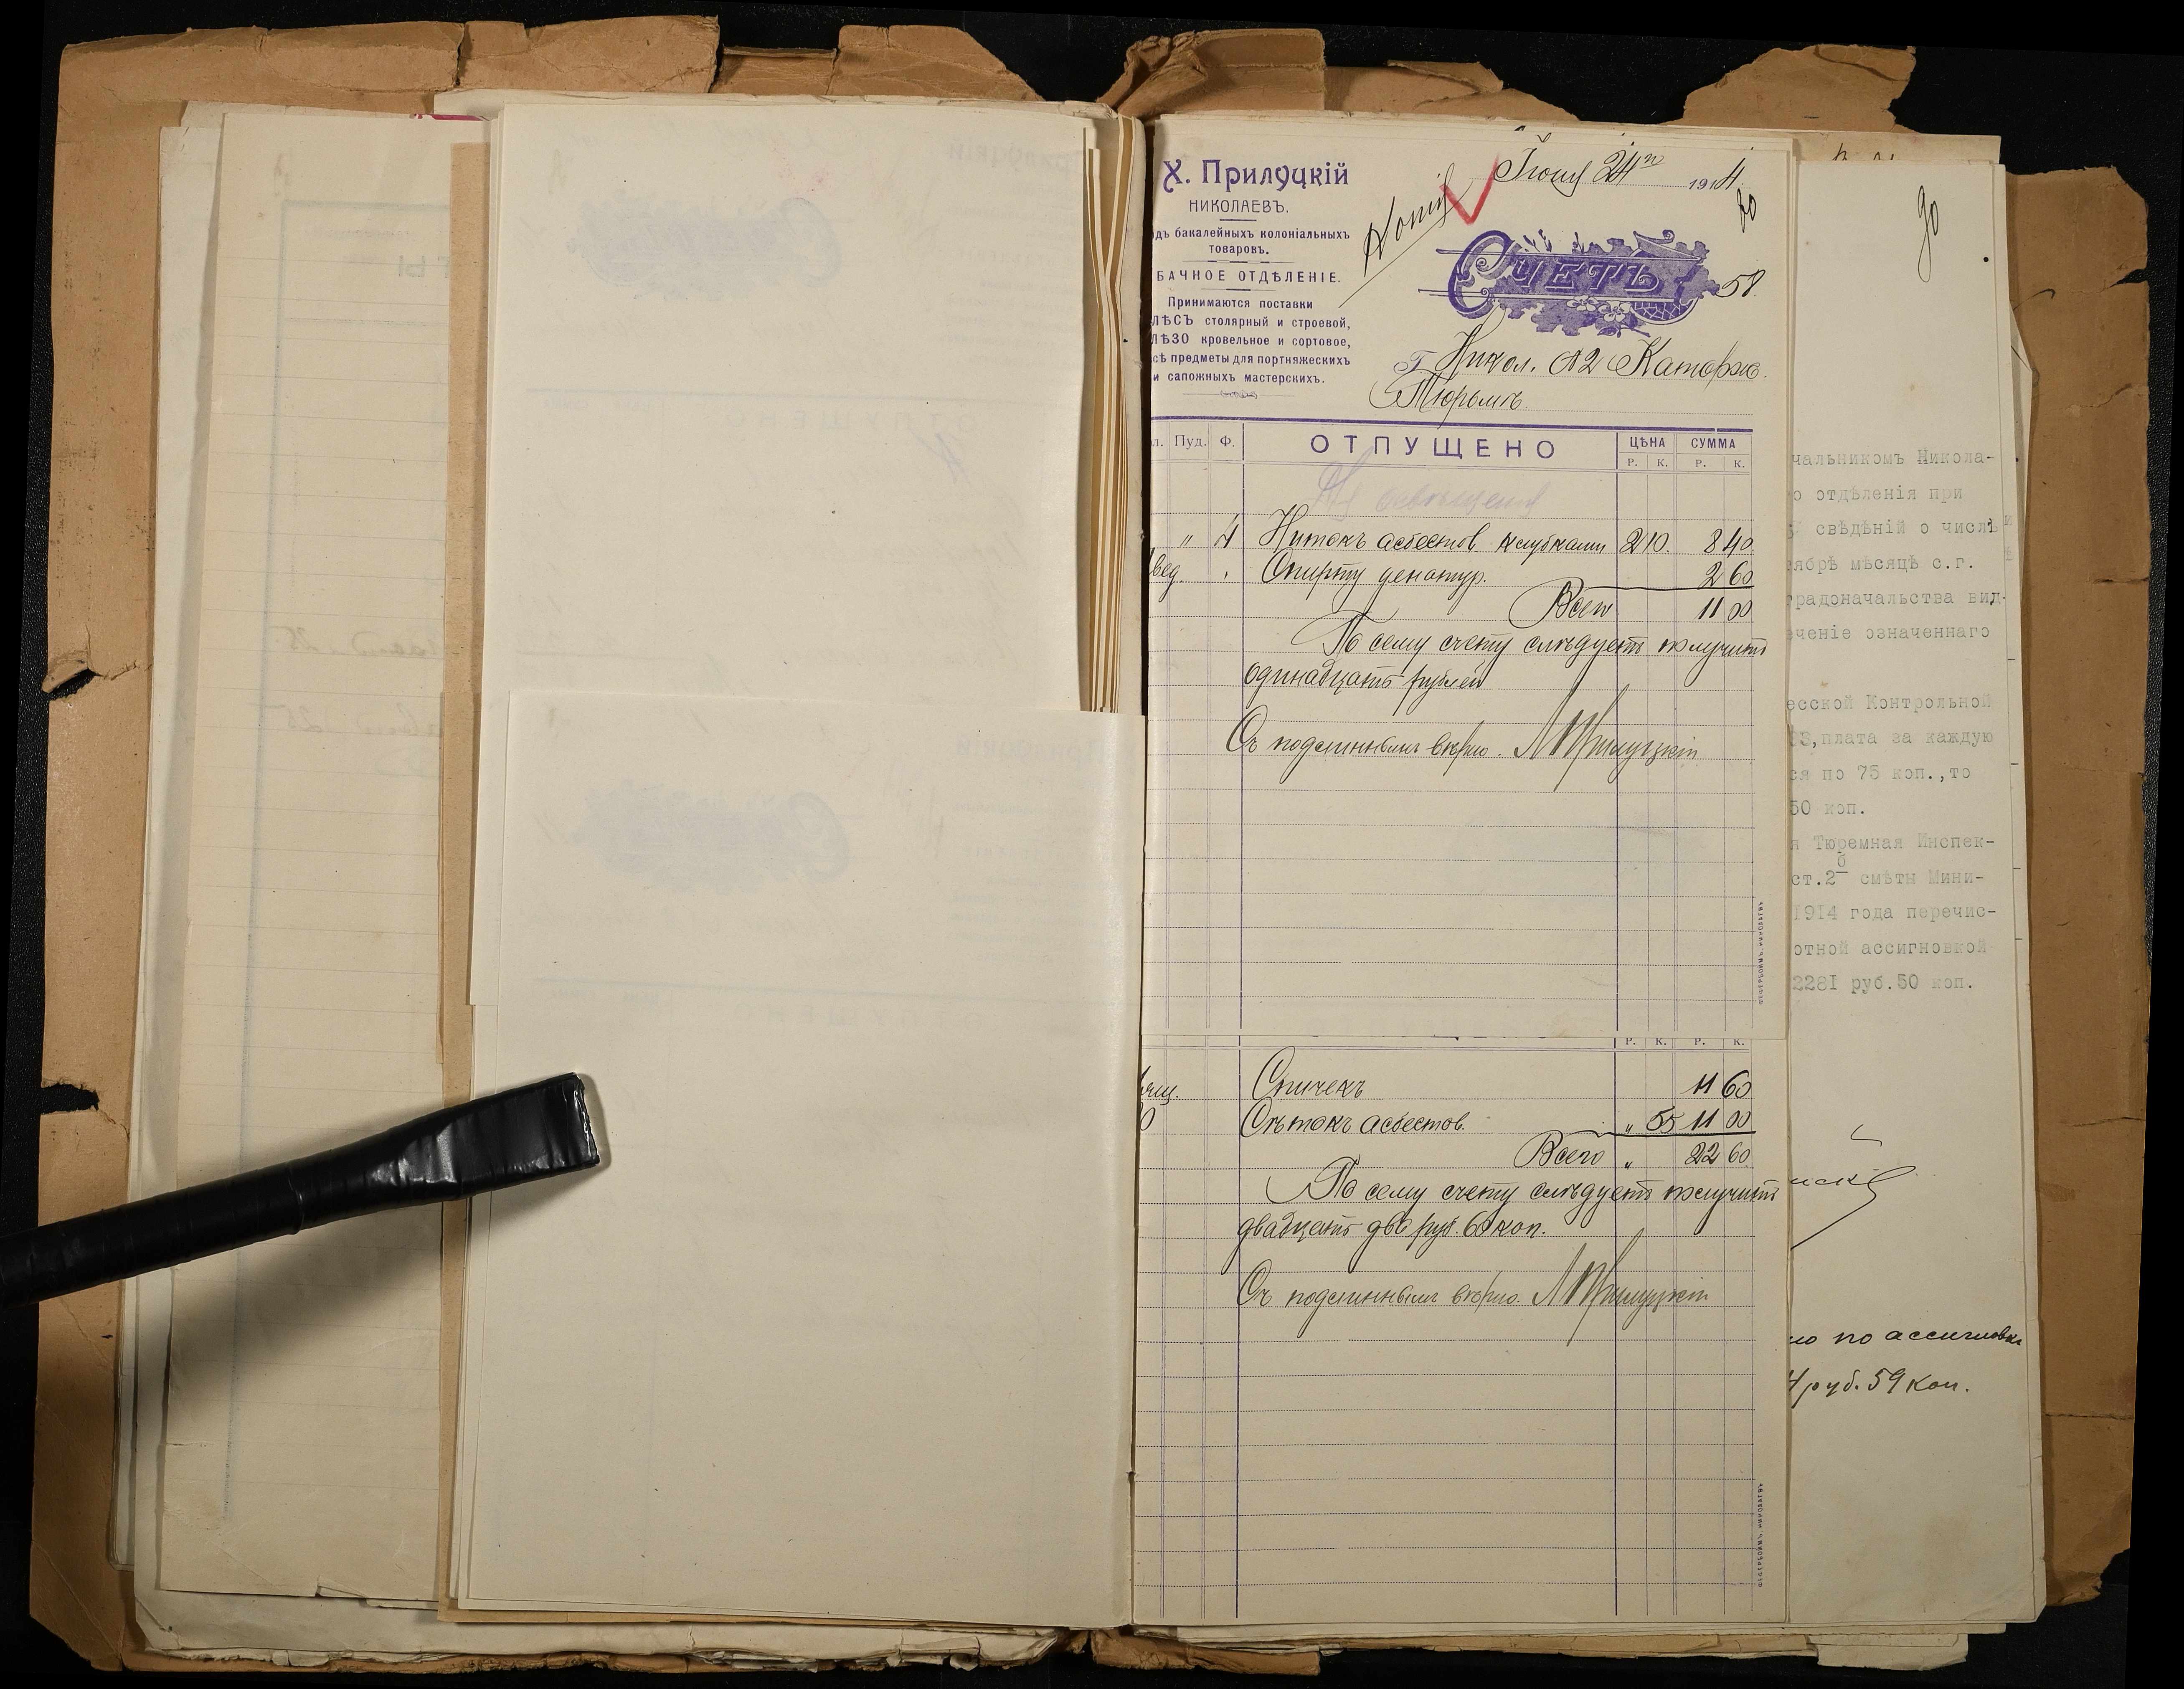 Х. Прилуцкій
НИКОЛАЕВЪ.
дъ бакалейныхъ колоніальныхъ
товаровъ.
БАЧНОЕ ОТДѢЛЕНІЕ.
Принимаются поставки
ЛѢСЪ столярный и строевой,
ЛѢЗО кровельное и сортовое,
сѣ предметы для портняжескихъ
и сапожныхъ мастерскихъ.
Копія
Іюня 24го 1914.
СЧЕТЪ
58.
Г. Никол. №2 Каторжн.
Тюрьмѣ
л. Пуд. Ф. ОТПУЩЕНО ЦѢНА СУММА
Р. К. Р. К.
На освѣщеніе
" 4 Нитокъ асбестов клубками 2 10. 8 40
вед. Спирту денатур. 2 60
Всего 11 00
По сему счету слѣдуетъ получить
одинадцать рублей
Съ подлиннымъ вѣрно. Прилуцкій
Р. К. Р. К.
ящ. Спичекъ 11 60
0 Сѣтокъ асбестов. " 55 11 00
Всего " 22 60
По сему счету слѣдуетъ получить
двадцать два руб. 60 коп.
Съ подлиннымъ вѣрно. Прилуцкій
90
чальникомъ Никола-
о отдѣленія при
свѣдѣній о числѣ
ябрѣ мѣсяцѣ с.г.
градоначальства вид-
ченіе означеннаго
есской Контрольной
53, плата за каждую
ся по 75 коп., то
50 коп.
я Тюремная Инспек-
ст.2б смѣты Мини-
1914 года перечис-
отной ассигновкой
2281 руб. 50 коп.
но по ассигновкѣ
4 руб. 59 коп.